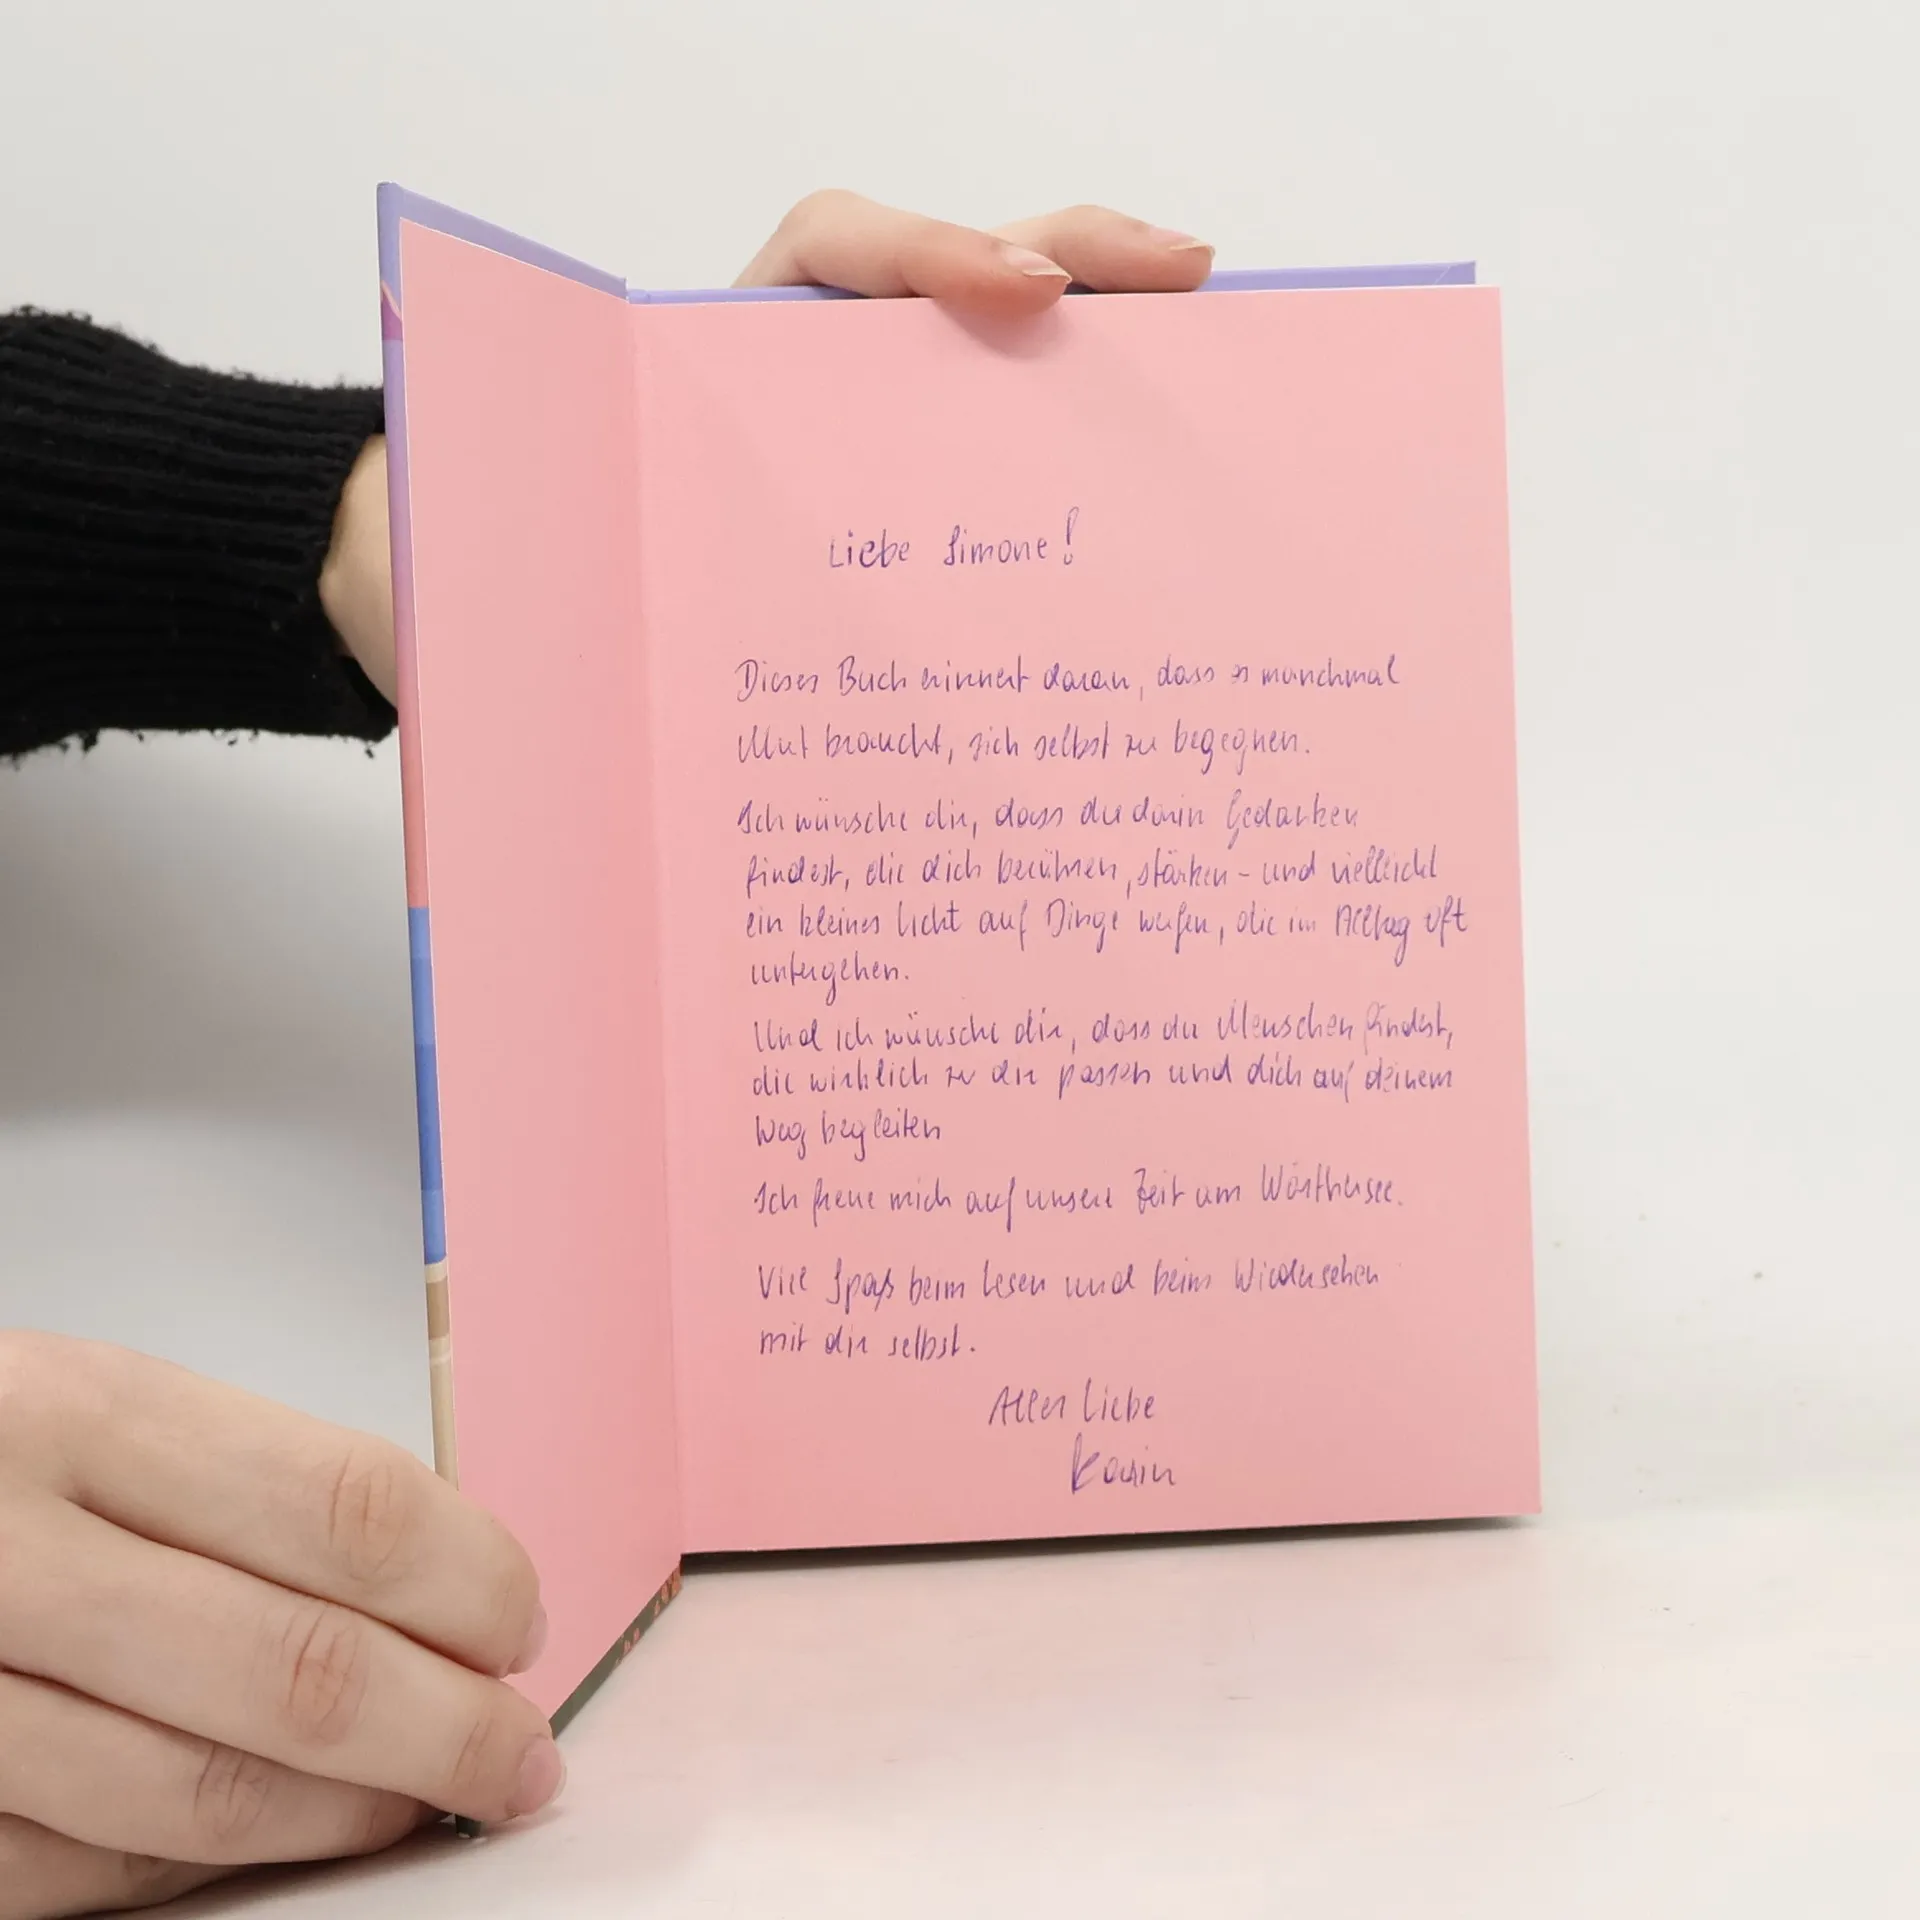 Liebe Simone!
Dieses Buch erinnert daran, dass es manchmal
Mut braucht, sich selbst zu begegnen.
Ich wünsche dir, dass du darin Gedanken
findest, die dich berühren, stärken - und vielleicht
ein kleines Licht auf Dinge werfen, die im Alltag oft
untergehen.
Und ich wünsche dir, dass du Menschen findest,
die wirklich zu dir passen und dich auf deinem
Weg begleiten
Ich freue mich auf unsere Zeit am Wörthersee.
Viel Spaß beim Lesen und beim Wiedersehen
mit dir selbst.
Alles Liebe
Karin